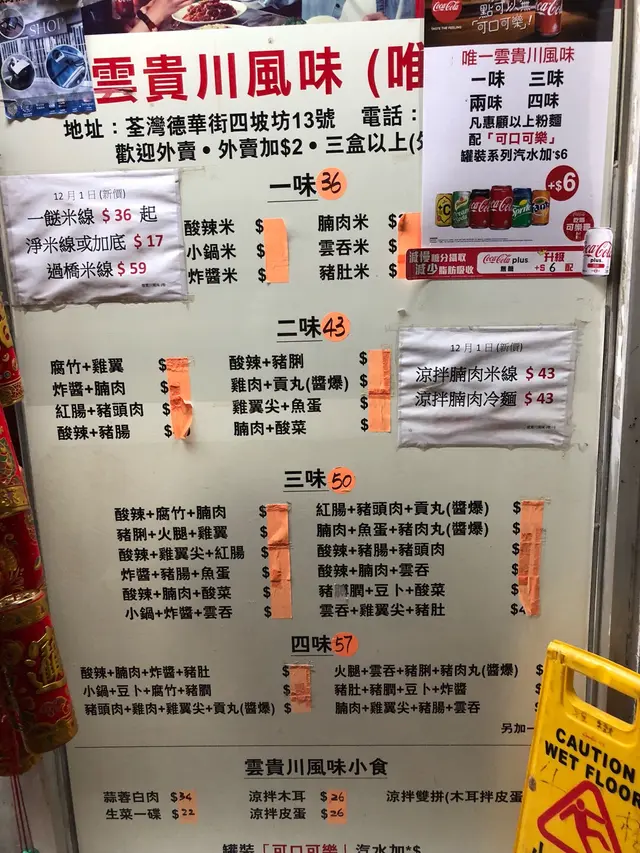 SHOP
雲貴川風味 (唯
地址：荃灣德華街四坡坊13號 電話：
歡迎外賣•外賣加$2•三盒以上(
點可以無
「可口可樂」
Coca-Cola
TASTE THE FEELING
唯一雲貴川風味
一味 三味
兩味 四味
凡惠顧以上粉麵
配「可口可樂」
罐裝系列汽水加$6
+$6
減慢糖分攝取
減少脂肪吸收
Coca-Cola plus
無糖
升級
+$ 6 配
一味 36
12 月 1 日 (新價)
一餸米線 $ 36 起
淨米線或加底 $ 17
過橋米線 $ 59
酸辣米 $
腩肉米 $
小鍋米 $
雲吞米 $
炸醬米 $
豬肚米 $
二味 43
腐竹+雞翼 $
酸辣+豬脷 $
炸醬+腩肉 $
雞肉+貢丸(醬爆) $
紅腸+豬頭肉 $
雞翼尖+魚蛋 $
酸辣+豬腸 $
腩肉+酸菜 $
12 月 1 日 (新價)
涼拌腩肉米線 $ 43
涼拌腩肉冷麵 $ 43
三味 50
酸辣+腐竹+腩肉 $
紅腸+豬頭肉+貢丸(醬爆) $
豬脷+火腿+雞翼 $
腩肉+魚蛋+豬肉丸(醬爆) $
酸辣+雞翼尖+紅腸 $
酸辣+豬腸+豬頭肉 $
炸醬+豬腸+魚蛋 $
酸辣+腩肉+雲吞 $
酸辣+腩肉+酸菜 $
豬膶+豆卜+酸菜 $
小鍋+炸醬+雲吞 $
雲吞+雞翼尖+豬肚 $4
四味 57
酸辣+腩肉+炸醬+豬肚 $
火腿+雲吞+豬脷+豬肉丸(醬爆) $
小鍋+豆卜+腐竹+豬膶 $
豬肚+豬膶+豆卜+炸醬 $
豬頭肉+雞肉+雞翼尖+貢丸(醬爆) $
腩肉+雞翼尖+豬腸+雲吞 $
另加一
雲貴川風味小食
蒜蓉白肉 $34
涼拌木耳 $26
涼拌雙拼(木耳拌皮蛋
生菜一碟 $22
涼拌皮蛋 $26
罐裝「可口可樂」汽水加*$
CAUTION
WET FLOOR